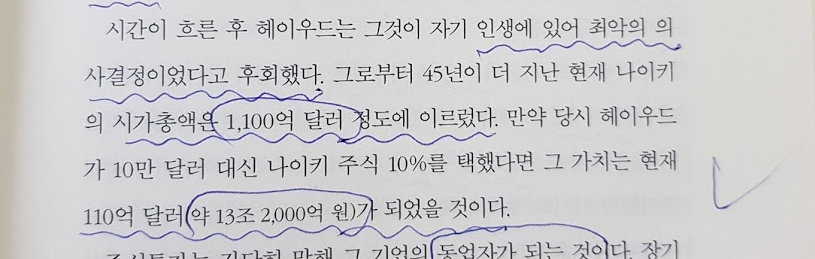 시간이 흐른 후 헤이우드는 그것이 자기 인생에 있어 최악의 의
사결정이었다고 후회했다. 그로부터 45년이 더 지난 현재 나이키
의 시가총액은 1,100억 달러 정도에 이르렀다. 만약 당시 헤이우드
가 10만 달러 대신 나이키 주식 10%를 택했다면 그 가치는 현재
110억 달러(약 13조 2,000억 원)가 되었을 것이다.
주식투자는 간단히 말해 그 기업의 동업자가 되는 것이다. 장기